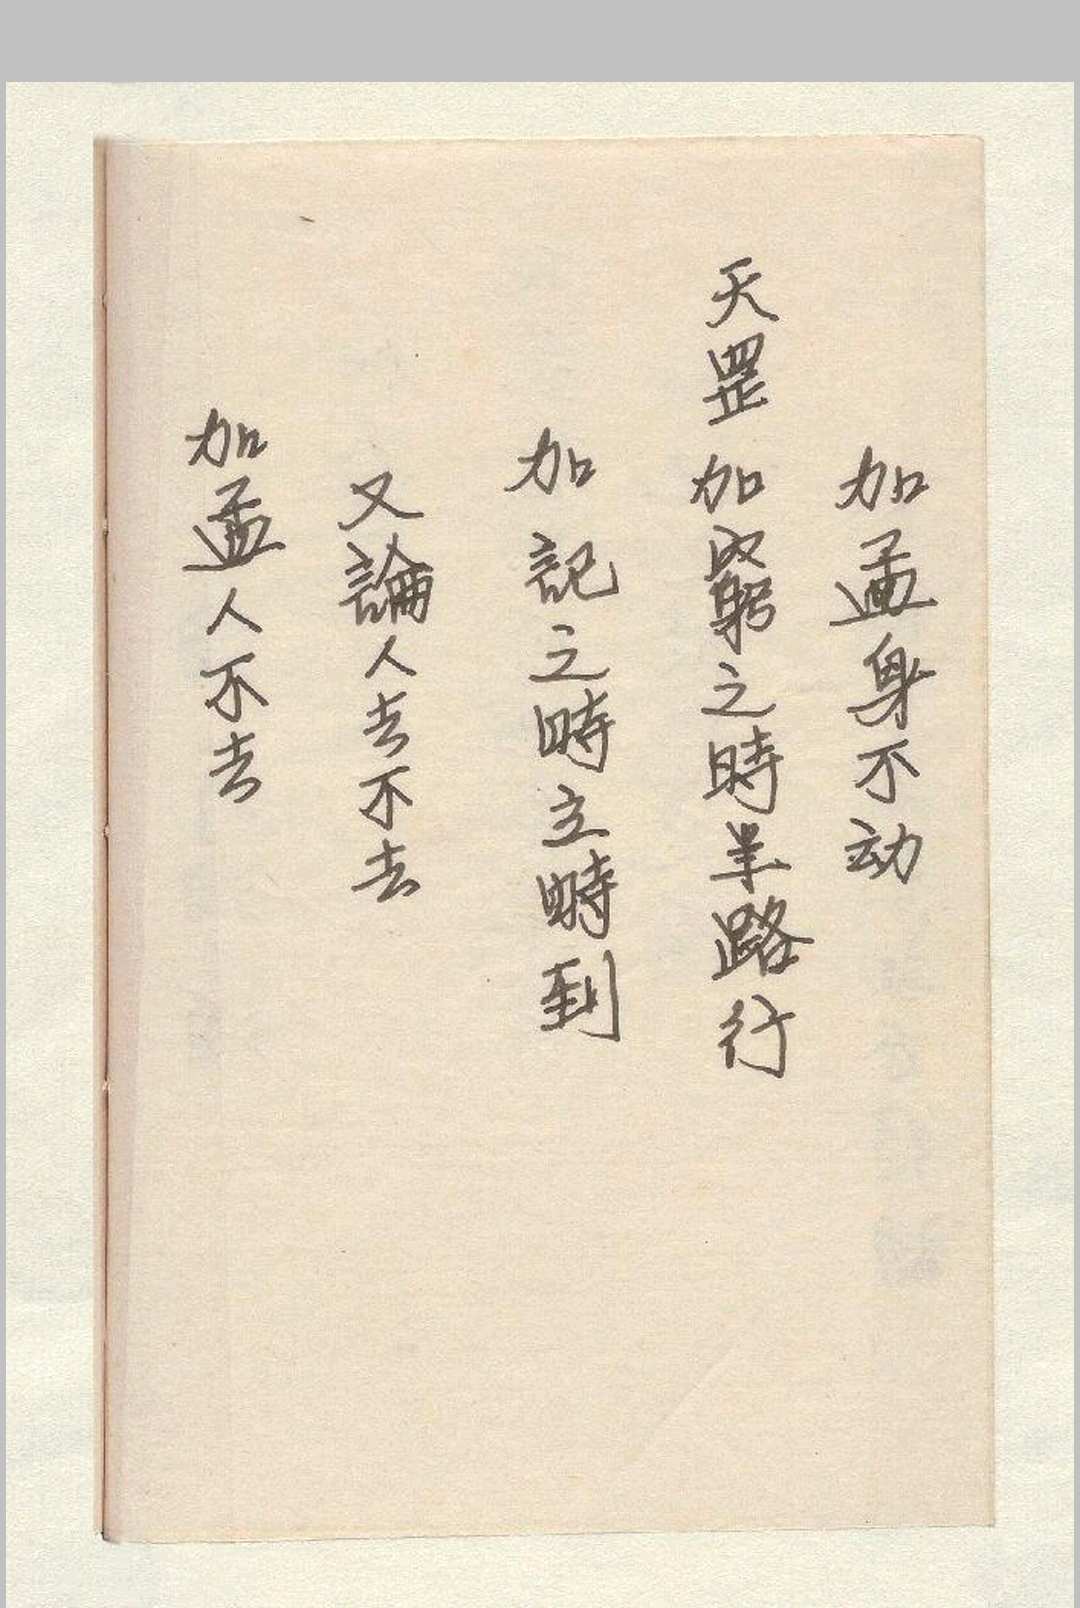 加孟身不动
天罡加窮之時羊路行
加記之時立時到
又論人去不去
加孟人不去